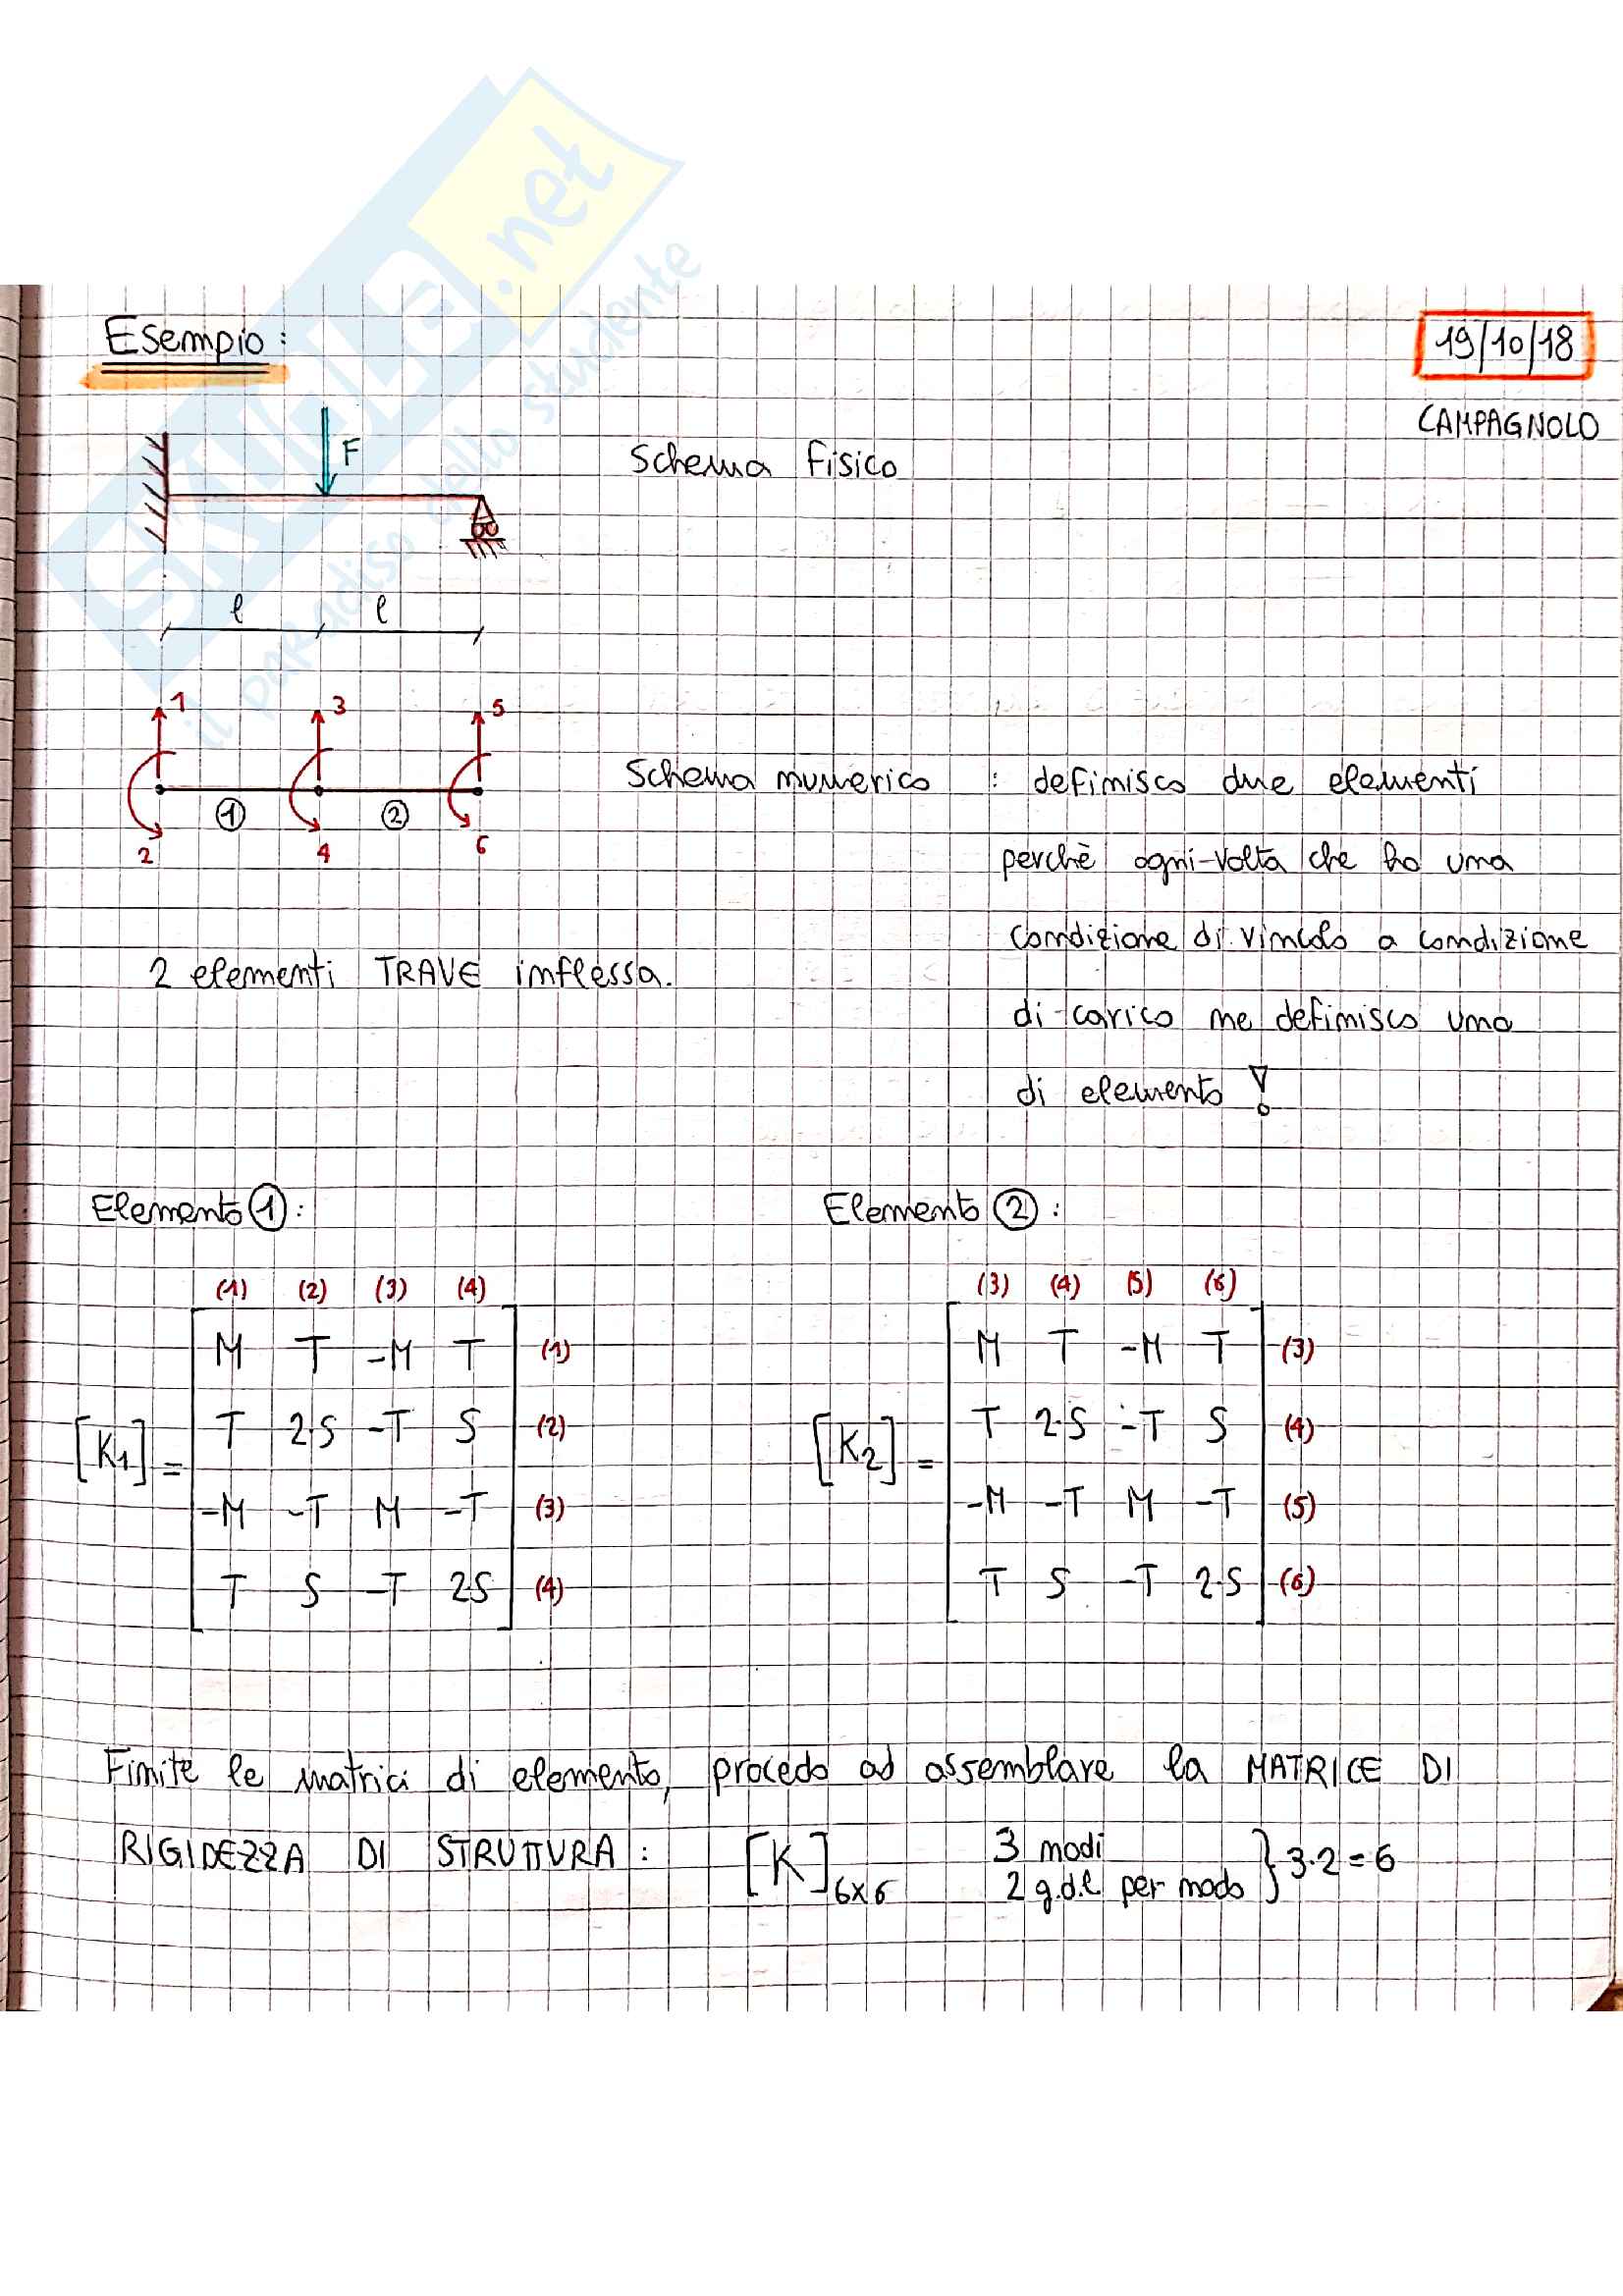 SKUOLA.net
il paradiso dello studente
Esempio:
19/10/18
CAMPAGNOLO
F
Schema fisico
l l
1 3 5
Schema numerico : definisco due elementi
1 2
2 4 6
perchè ogni volta che ho una
condizione di vincolo o condizione
2 elementi TRAVE inflessa.
di carico me definisco una
di elemento !
Elemento 1: Elemento 2:
(1) (2) (3) (4) (3) (4) (5) (6)
M T -M T (1) M T -M T (3)
[K1] = T 2S -T S (2) [K2] = T 2S -T S (4)
-M -T M -T (3) -M -T M -T (5)
T S -T 2S (4) T S -T 2S (6)
Finite le matrici di elemento, procedo ad assemblare la MATRICE DI
RIGIDEZZA DI STRUTTURA: [K]6x6 3 nodi
2 g.d.l per nodo } 3·2=6